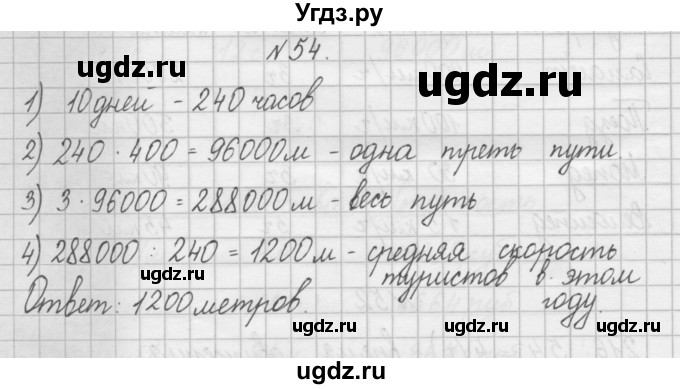 Угдз.ру
N 54.
1) 10 дней - 240 часов
2) 240 · 400 = 96000 м - одна треть пути.
3) 3 · 96000 = 288000 м - весь путь
4) 288000 : 240 = 1200 м - средняя скорость
туристов в этом
Ответ: 1200 метров. году.
ugdz.ru
ugdz.ru
ugdz.ru
ugdz.ru
ugdz.ru
ugdz.ru
ugdz.ru
ugdz.ru